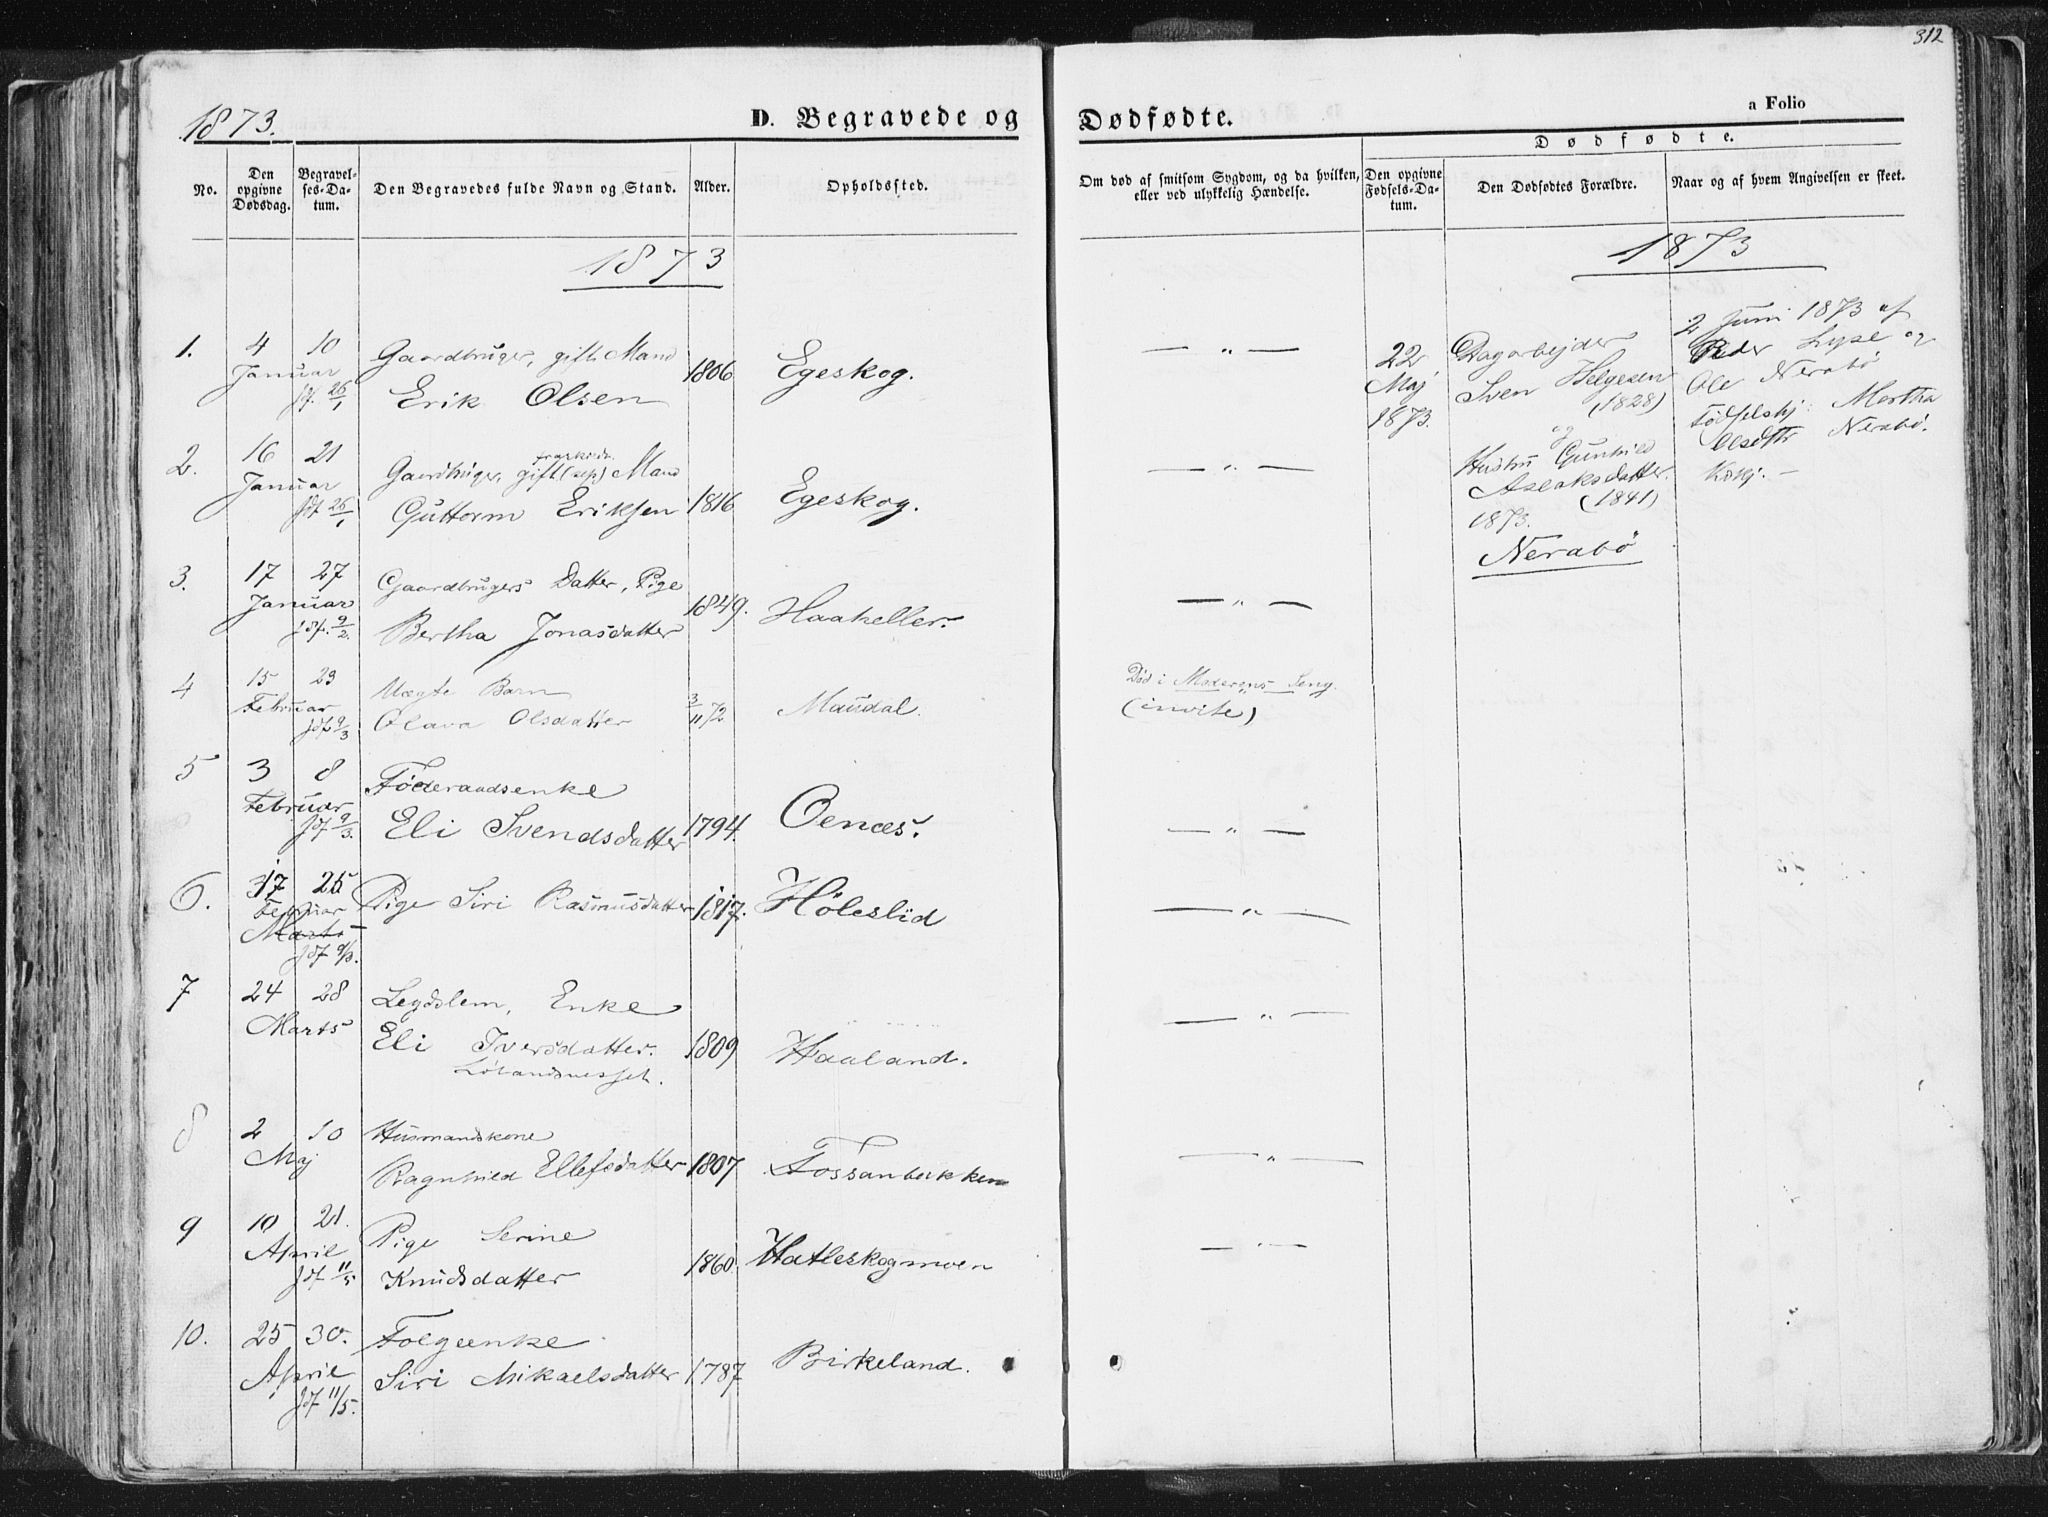 312
1873.
D. Begravede og Dødfødte.
a Folio
No.
Den opgivne Dødsdag.
Begravelses-Datum.
Den Begravedes fulde Navn og Stand.
Alder.
Opholdssted.
Om død af smitsom Sygdom, og da hvilken, eller ved ulykkelig Hændelse.
Dødfødte.
Den opgivne Fødsels-Datum.
Den Dødfødtes Forældre.
Naar og af hvem Angivelsen er skeet.
1873
1873
1. 4 10 Gaardbruger, gift Mand
Januar
jdf. 26/1 Erik Olsen 1806 Egeskog. — " —
2. 16 21 Gaardbruger, gift (sep) Mand
fraskildt
Januar
jdf 26/1 Guttorm Eriksen 1816 Egeskog. — " —
3. 17 27 Gaardbrugers Datter, Pige
Januar
jdf. 9/2. Bertha Jonasdatter 1849. Haaheller. — " —
4 15 23 Uægte Barn
Februar
jdf 9/3 Olava Olsdatter 3/11 72 Maudal.
Død i Moderens Seng.
(invite)
5 3 8 Föderaadsenke
Februar
jdf 9/3. Eli Svendsdatter 1794. Oenæs. — " —
6. 17 25 Pige Siri Rasmusdatter 1817. Höleslid — " —
Februar
Marts
jdf 9/3.
7 24 28 Legdslem, Enke
Marts Eli Iversdatter. 1809 Haaland. — " —
8 2 10 Husmandskone
Maj Ragnhild Ellefsdatter 1807 Fossanbækken — " —
9 10 21. Pige Serine
April
jdf 11/5 Knudsdatter 1860. Hatleskogmoen — " —
10. 25 30. Folgeenke
April Siri Mikaelsdatter 1787 Birkeland.
jdf 11/5.
22
Maj
1873.
Dagarbejder
Sven Helgesen
(1828)
og
Hustru Gunhild
Aslaksdatter.
(1841)
1873.
Nerabö
2 Juni 1873 af
Peder Lyse og
Ole Nerabö
Födselshj: Martha
Olsdtr Nerabö.